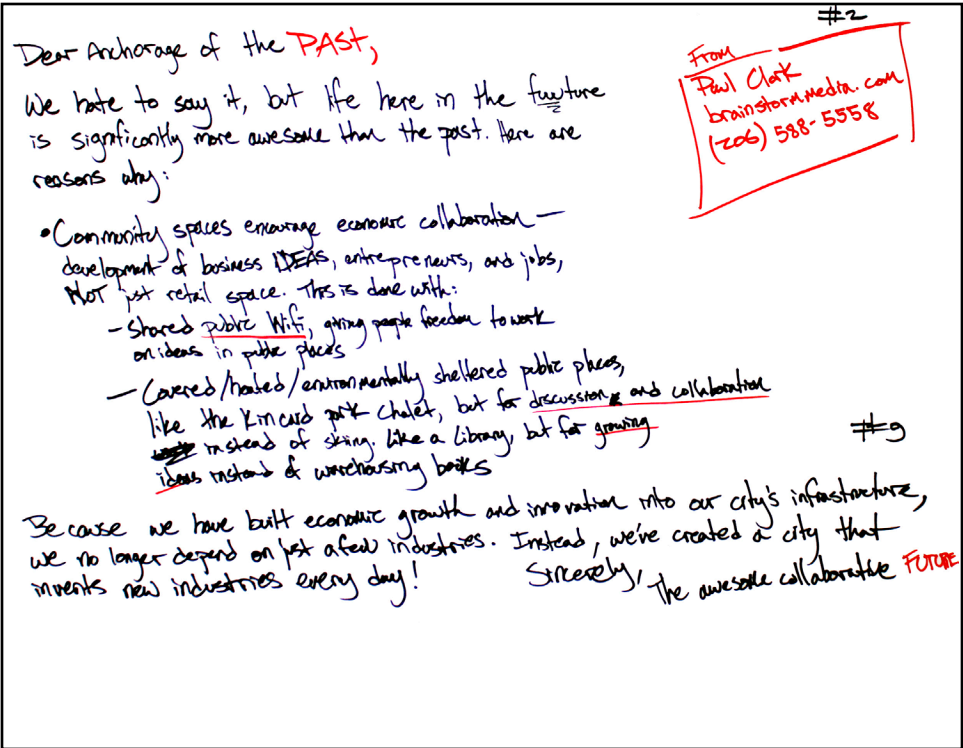 #2
Dear Anchorage of the PAST,
From
Paul Clark
brainstormmedia.com
(206) 588-5558
We hate to say it, but life here in the fuuture
is significantly more awesome than the past. Here are
reasons why:
• Community spaces encourage economic collaboration —
development of business IDEAS, entrepreneurs, and jobs,
NOT just retail space. This is done with:
- Shared public Wifi, giving people freedom to work
on ideas in public places
- Covered/heated/environmentally sheltered public places,
like the Kincaid park Chalet, but for discussion and collaboration
instead of skiing. Like a Library, but for growing
ideas instead of warehousing books
#9
Because we have built economic growth and innovation into our city's infrastructure,
we no longer depend on just a few industries. Instead, we've created a city that
invents new industries every day!
Sincerely,
The awesome collaborative FUTURE